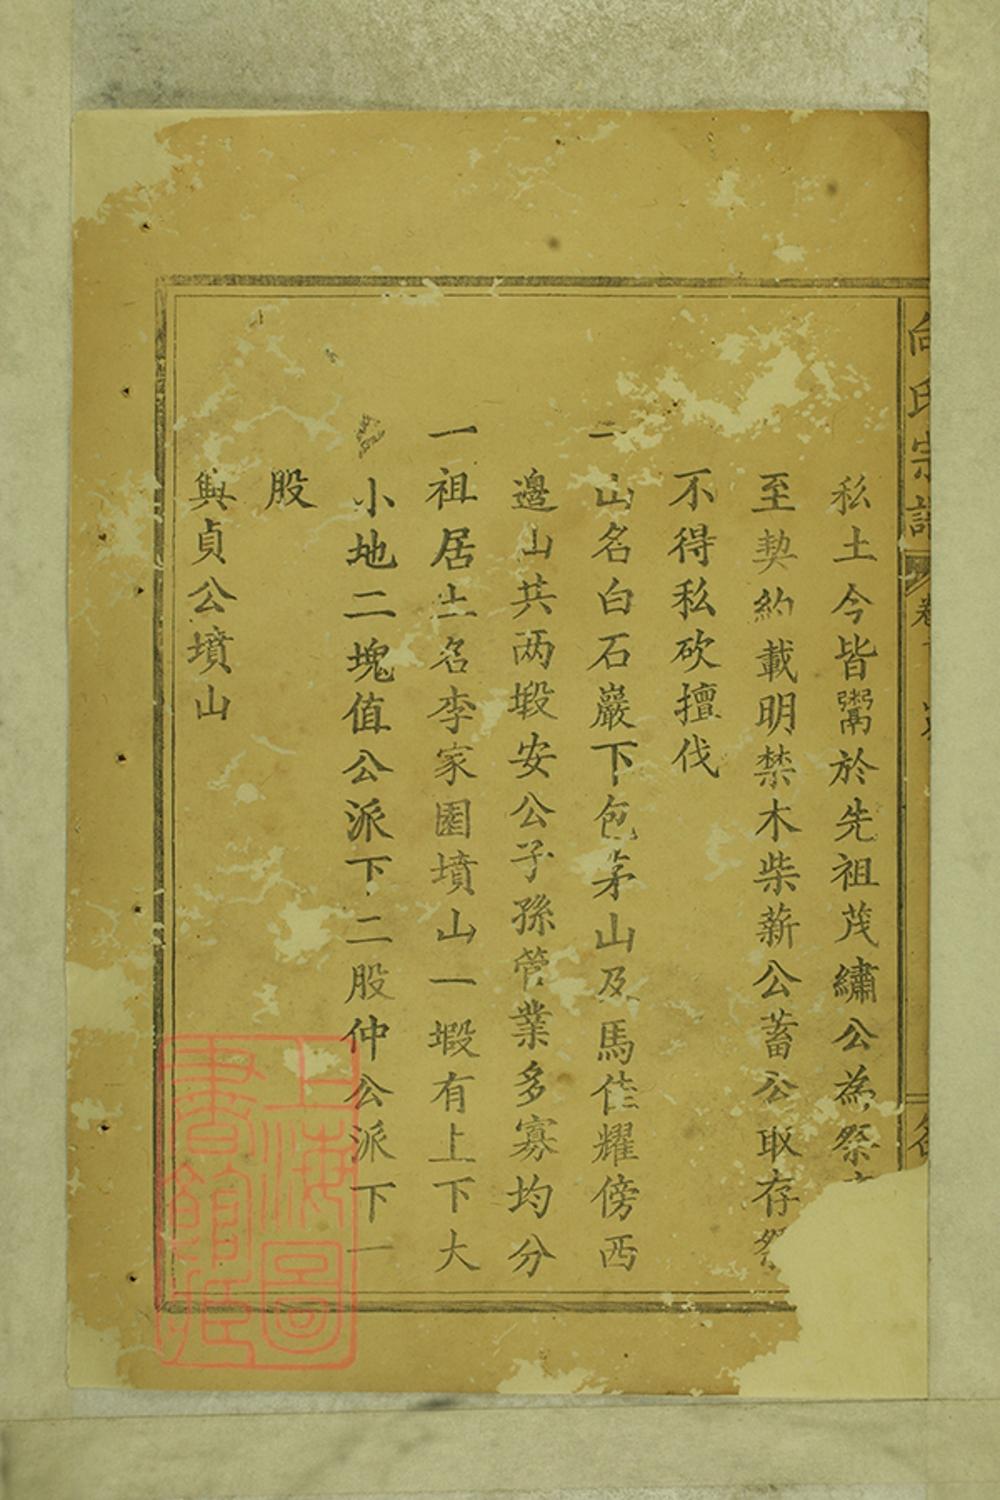 向氏宗譜 卷
私土今皆鬻於先祖茂繡公為祭
至契約載明禁木柴薪公蓄公取存祭
不得私砍擅伐
一山名白石巖下包茅山及馬佳耀傍西
邊山共两塅安公子孫管業多寡均分
一祖居土名李家園墳山一塅有上下大
小地二塊值公派下二股仲公派下一
股
與貞公墳山
上海圖書館藏